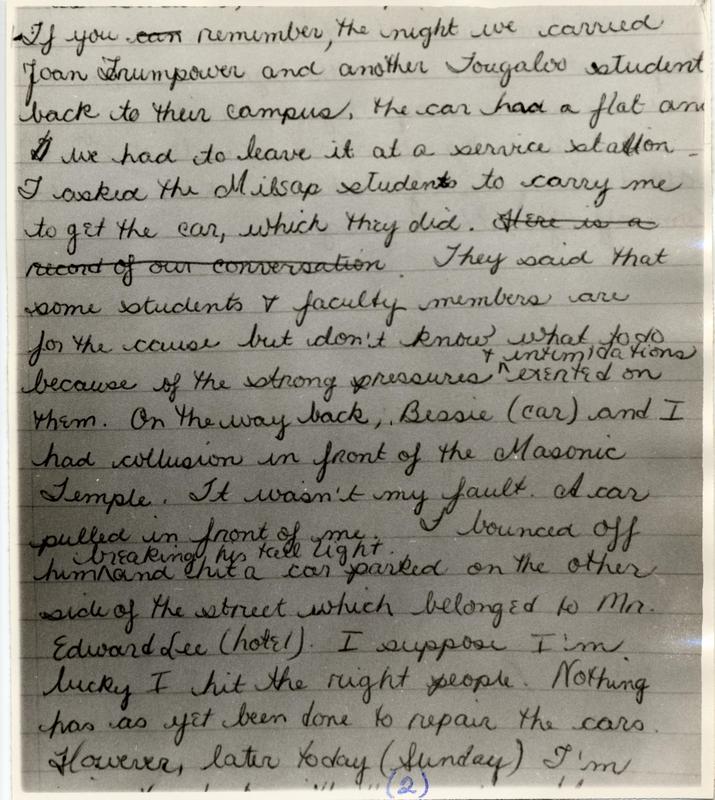 If you can remember, the night we carried
Joan Trumpower and another Tougaloo student
back to their campus, the car had a flat and
I we had to leave it at a service station.
I asked the Milsap students to carry me
to get the car, which they did. Here is a
record of our conversation. They said that
some students & faculty members are
for the cause but don't know what to do
because of the strong pressures & intimidations exerted on
them. On the way back, Bessie (car) and I
had collusion in front of the Masonic
Temple. It wasn't my fault. A car
pulled in front of me. I bounced off
him breaking his tail light and hit a car parked on the other
side of the street which belonged to Mr.
Edward Lee (hotel). I suppose I'm
lucky I hit the right people. Nothing
has as yet been done to repair the cars.
However, later today (Sunday) I'm
(2)